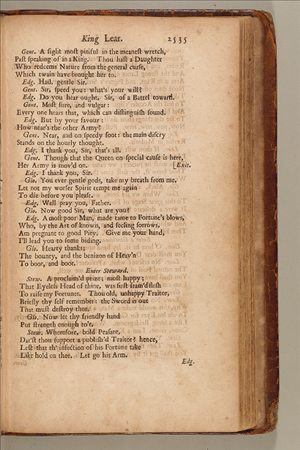 King Lear. 2535
Gent. A sight most pitiful in the meanest wretch,
Past speaking of in a King. Thou hast a Daughter
Who redeems Nature from the general curse,
Which twain have brought her to.
Edg. Hail, gentle Sir.
Gent. Sir, speed you: what's your will?
Edg. Do you hear ought, Sir, of a Battel toward.
Gent. Most sure, and vulgar:
Every one hears that, which can distinguish sound.
Edg. But by your favour:
How near's the other Army?
Gent. Near, and on speedy foot: the main descry
Stands on the hourly thought.
Edg. I thank you, Sir, that's all.
Gent. Though that the Queen on special cause is here,
Her Army is mov'd on. [Exit.
Edg. I thank you, Sir.
Glo. You ever gentle gods, take my breath from me,
Let not my worser Spirit tempt me again
To die before you please.
Edg. Well pray you, Father.
Glo. Now good Sir, what are you?
Edg. A most poor Man, made tame to Fortune's blows,
Who, by the Art of known, and feeling sorrows,
Am pregnant to good Pity. Give me your hand,
I'll lead you to some biding.
Glo. Hearty thanks;
The bounty, and the benizon of Heav'n
To boot, and boot.
Enter Steward.
Stew. A proclaim'd prize; most happy;
That Eyeless Head of thine, was first fram'd flesh
To raise my Fortunes. Thou old, unhappy Traitor,
Briefly thy self remember: the Sword is out
That must destroy thee.
Glo. Now let thy friendly hand
Put strength enough to't.
Stew. Wherefore, bold Peasant,
Dar'st thou support a publish'd Traitor? hence,
Lest that th' infection of his Fortune take
Like hold on thee. Let go his Arm.
Edg.